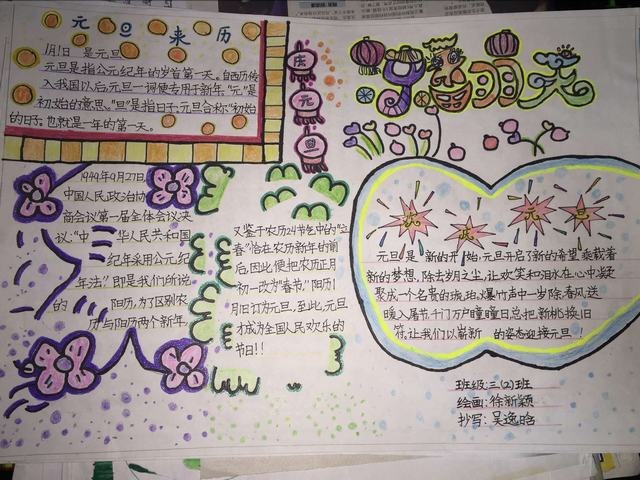 元旦来历
1月1日 是元旦
元旦是指公元纪年的岁首第一天。自西历传
入我国以后,元旦一词便专用于新年。"元"是
初始的意思。"旦"是指日子;元旦合称"初始
的日子。也就是一年的第一天。
庆
元
旦
1949年9月27日,
中国人民政治协
商会议第一届全体会议决
议:"中 华人民共和国
纪年采用公元纪
年法"即是我们所说
的 阳历,为了区别农
历与阳历两个新年,
又鉴于农历24节气中的"立
春"恰在农历新年的前
后,因此便把农历正月
初一改为"春节",阳历1
月1日订为元旦,至此,元旦
才成为全国人民欢乐的
节日!!
庆庆元旦
元旦是 新的开始,元旦开启了新的希望,乘载着
新的梦想,除去岁月之尘,让欢笑和泪水在心中凝
聚成一个名贵的琥珀,爆竹声中一岁除,春风送
暖入屠苏,千门万户曈曈日,总把新桃换旧
符,让我们以崭新 的姿态迎接元旦!
班级:三(2)班
绘画:徐新颖
抄写:吴逸晗